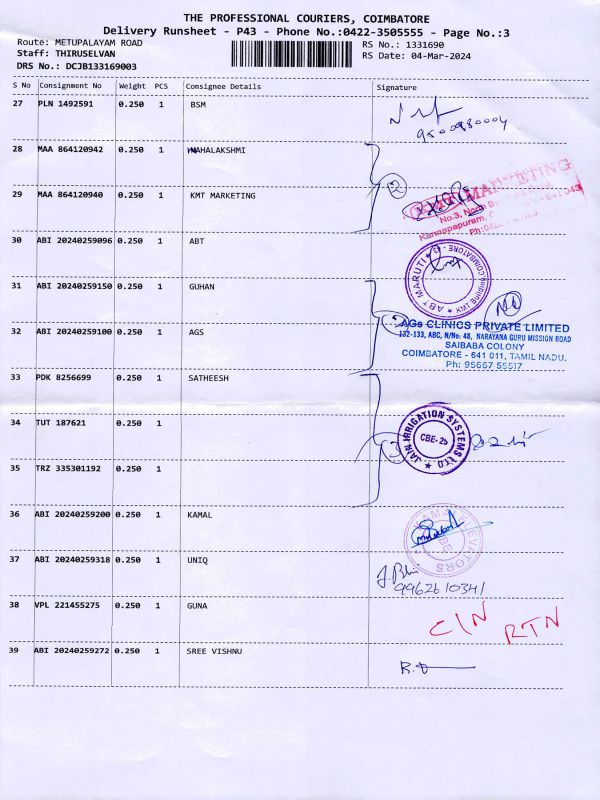 THE PROFESSIONAL COURIERS, COIMBATORE
Delivery Runsheet - P43 - Phone No.:0422-3505555 - Page No.:3
Route: METUPALAYAM ROAD
RS No.: 1331690
Staff: THIRUSELVAN
RS Date: 04-Mar-2024
DRS No.: DCJB133169003
S No Consignment No Weight PCS Consignee Details Signature
27 PLN 1492591 0.250 1 BSM
9500980004
28 MAA 864120942 0.250 1 MAHALAKSHMI
29 MAA 864120940 0.250 1 KMT MARKETING
2
MARKETING
30 ABI 20240259096 0.250 1 ABT
ABT MARUTI
COIMBATORE
31 ABI 20240259150 0.250 1 GUHAN
32 ABI 20240259100 0.250 1 AGS
AGs CLINICS PRIVATE LIMITED
132-133, ABC, N/No: 48, NARAYANA GURU MISSION ROAD
SAIBABA COLONY
COIMBATORE - 641 011, TAMIL NADU.
Ph: 95667 55517
33 PDK 8256699 0.250 1 SATHEESH
34 TUT 187621 0.250 1
JAIN IRRIGATION SYSTEMS LTD
CBE-25
35 TRZ 335301192 0.250 1
36 ABI 20240259200 0.250 1 KAMAL
37 ABI 20240259318 0.250 1 UNIQ
9962610341
38 VPL 221455275 0.250 1 GUNA
C/N RTN
39 ABI 20240259272 0.250 1 SREE VISHNU